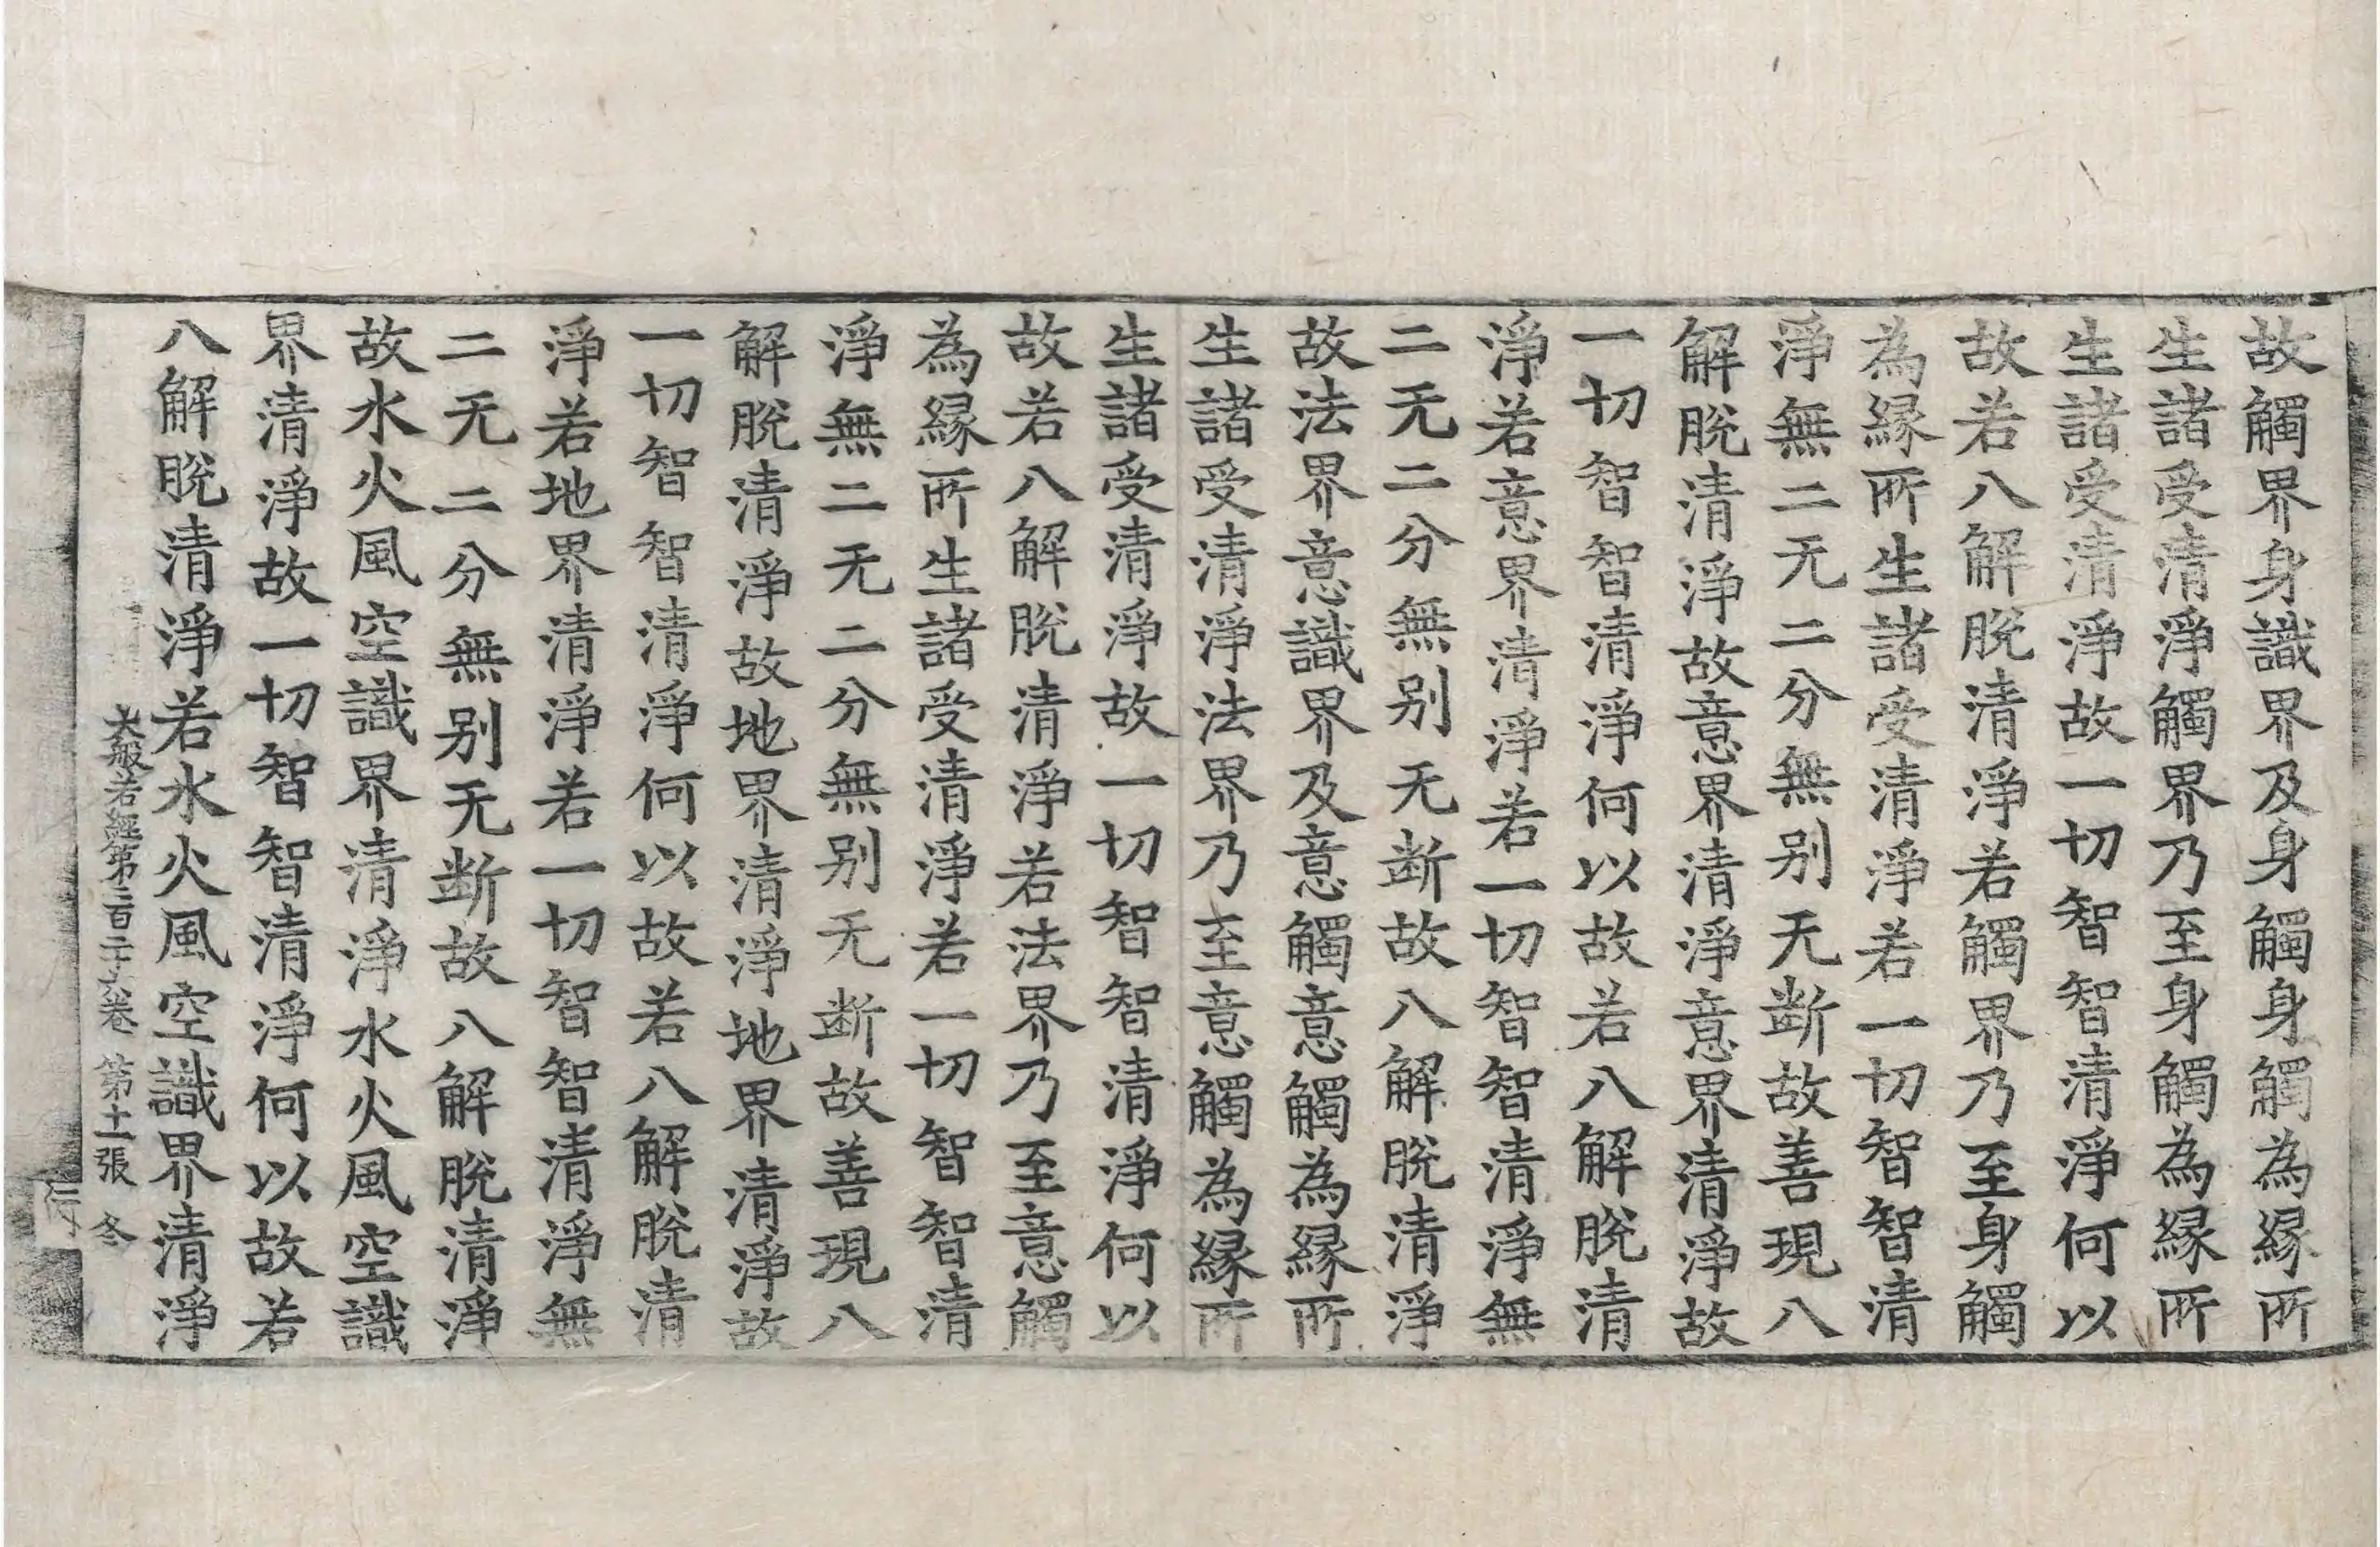 故觸界身識界及身觸身觸為緣所
生諸受清淨觸界乃至身觸為緣所
生諸受清淨故一切智智清淨何以
故若八解脫清淨若觸界乃至身觸
為緣所生諸受清淨若一切智智清
淨無二无二分無别无斷故善現八
解脫清淨故意界清淨意界清淨故
一切智智清淨何以故若八解脫清
淨若意界清淨若一切智智清淨無
二无二分無别无斷故八解脫清淨
故法界意識界及意觸意觸為緣所
生諸受清淨法界乃至意觸為緣所
生諸受清淨故一切智智清淨何以
故若八解脫清淨若法界乃至意觸
為緣所生諸受清淨若一切智智清
淨無二无二分無别无斷故善現八
解脫清淨故地界清淨地界清淨故
一切智智清淨何以故若八解脫清
淨若地界清淨若一切智智清淨無
二无二分無别无斷故八解脫清淨
故水火風空識界清淨水火風空識
界清淨故一切智智清淨何以故若
八解脫清淨若水火風空識界清淨
大般若經第二百二十六卷 第十一張 冬